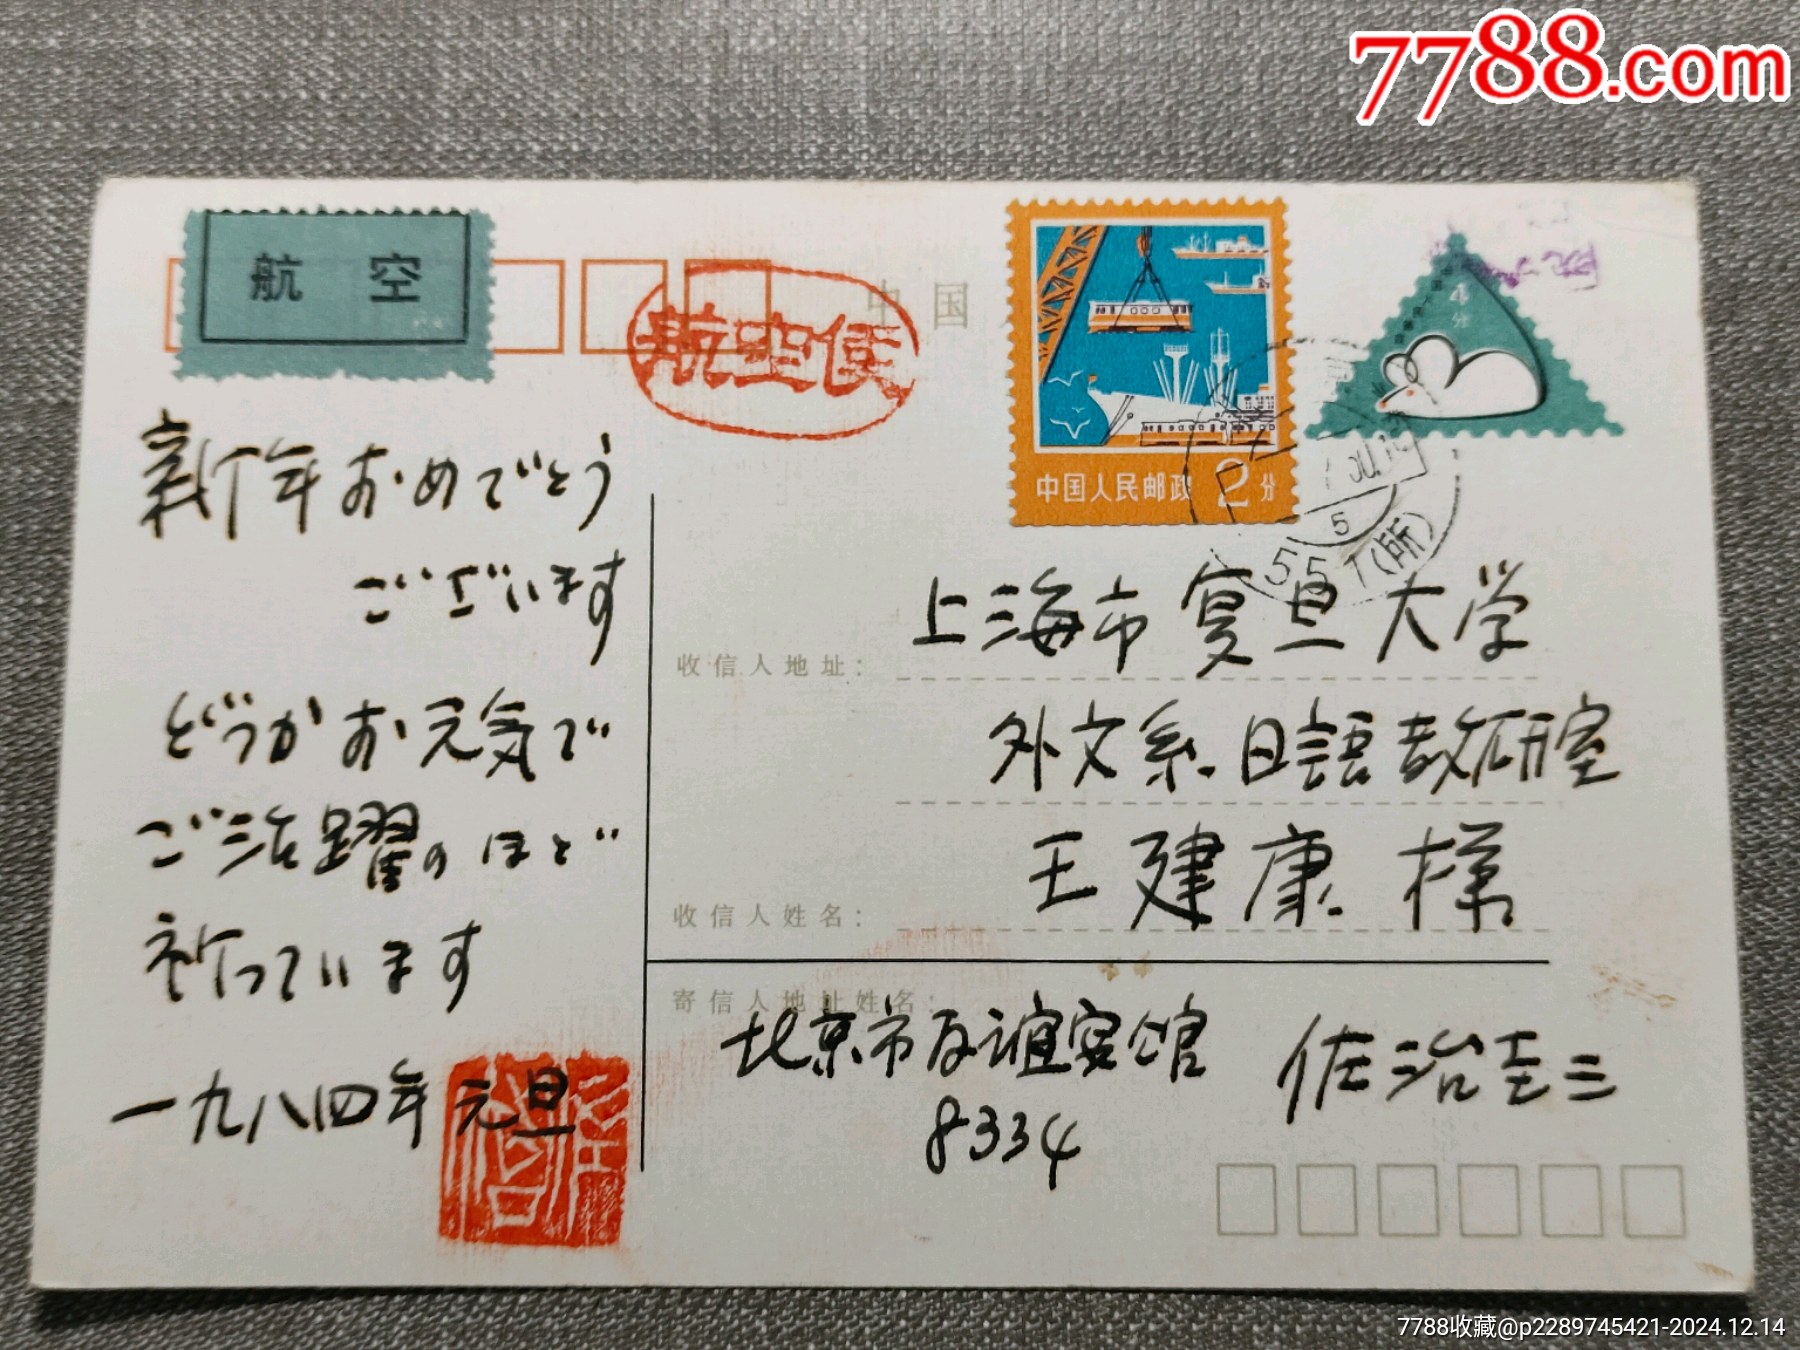 7788.com
航 空
航空便
中 国
4
分
中国人民邮政 2 分
5
551(所)
新年おめでとう
ございます
どうかお元気で
ご活躍のほど
祈っています
一九八四年元旦
收信人地址:
上海市复旦大学
外文系.日語教研室
收信人姓名:
王建康 様
寄信人地址姓名:
北京市友谊宾馆 佐治圭三
8334
7788收藏@p2289745421-2024.12.14